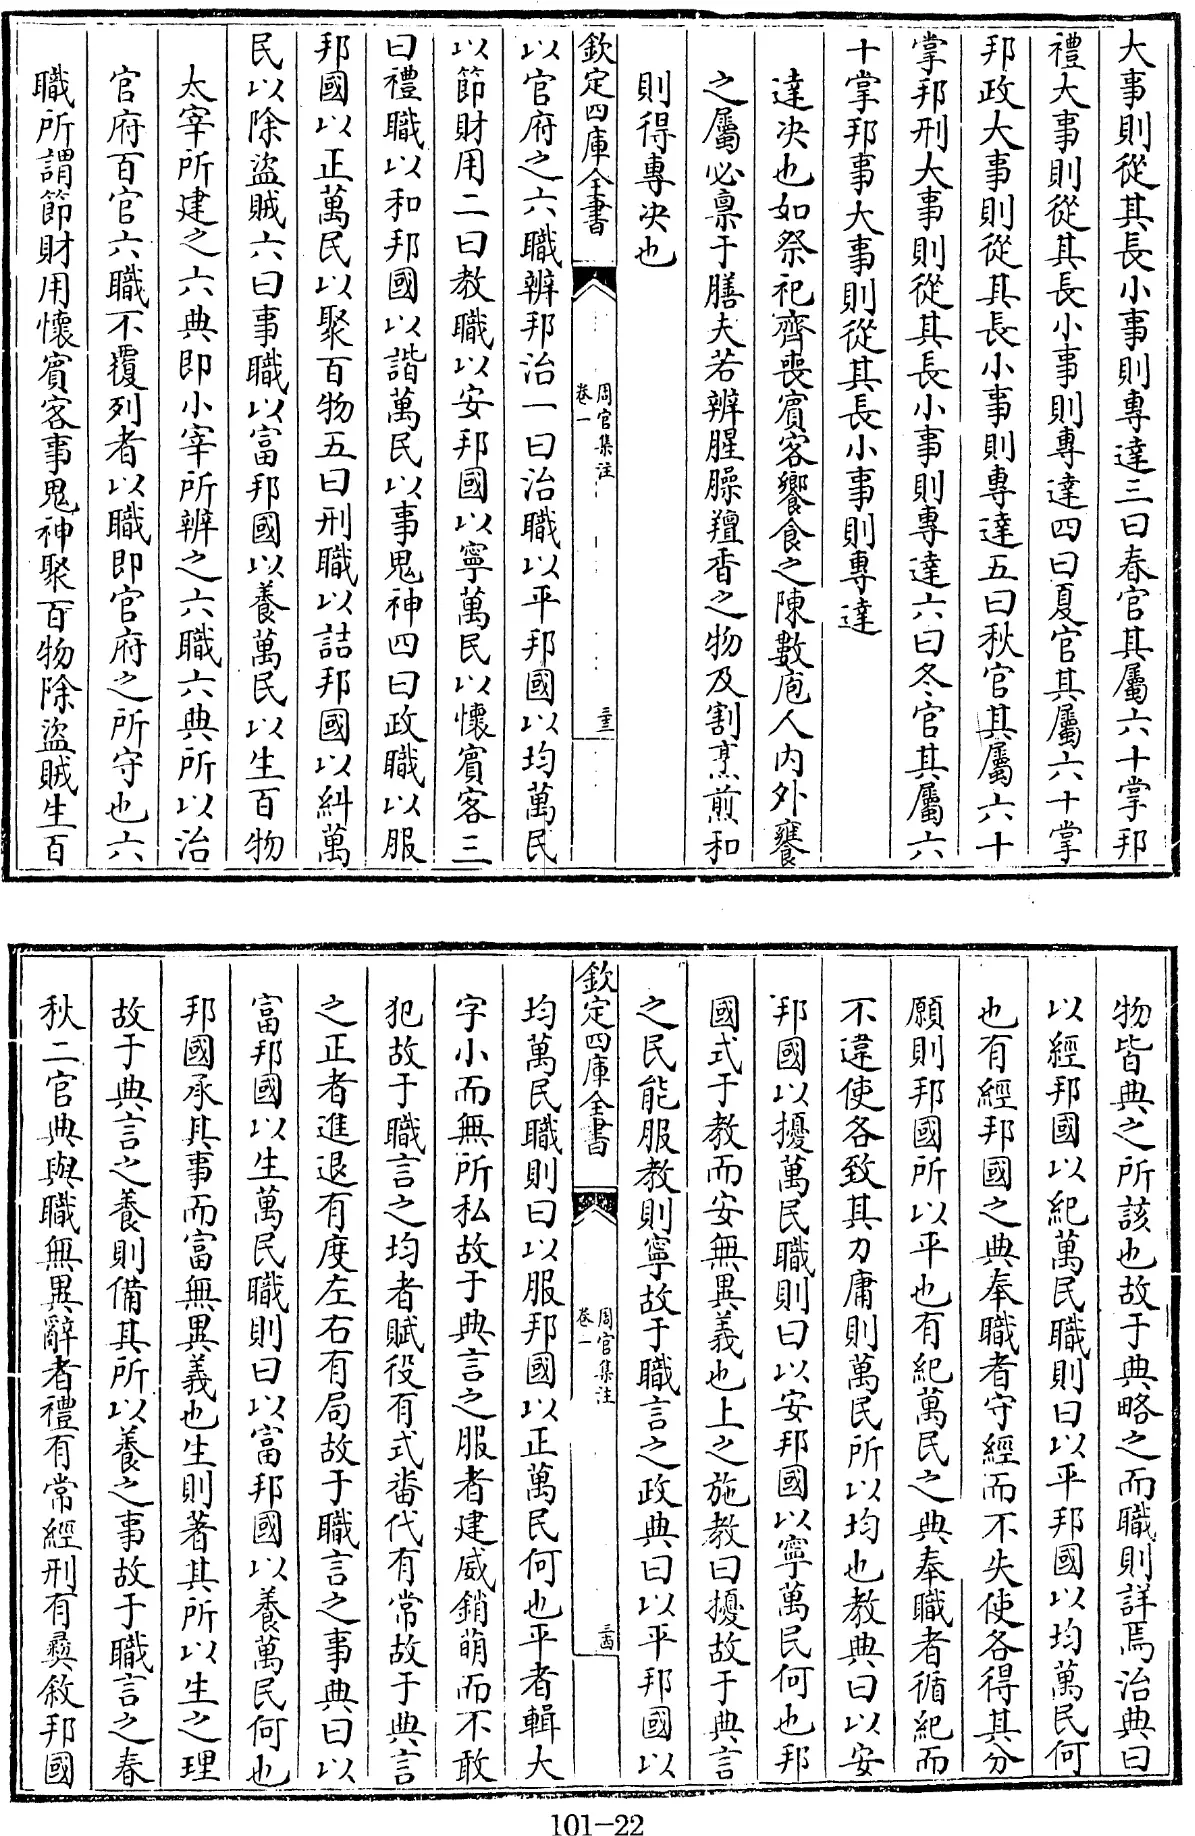 大事則從其長小事則專達三曰春官其屬六十掌邦
禮大事則從其長小事則專達四曰夏官其屬六十掌
邦政大事則從其長小事則專達五曰秋官其屬六十
掌邦刑大事則從其長小事則專達六曰冬官其屬六
十掌邦事大事則從其長小事則專達
達决也如祭祀齊喪賓客饗食之陳數庖人内外饔
之屬必禀于膳夫若辨腥臊羶香之物及割烹煎和
則得專决也
欽定四庫全書
周官集注
卷一
三三
以官府之六職辨邦治一曰治職以平邦國以均萬民
以節財用二曰教職以安邦國以寧萬民以懷賓客三
曰禮職以和邦國以諧萬民以事鬼神四曰政職以服
邦國以正萬民以聚百物五曰刑職以詰邦國以糾萬
民以除盜賊六曰事職以富邦國以養萬民以生百物
太宰所建之六典即小宰所辨之六職六典所以治
官府百官六職不覆列者以職即官府之所守也六
職所謂節財用懷賓客事鬼神聚百物除盜賊生百
物皆典之所該也故于典略之而職則詳焉治典曰
以經邦國以紀萬民職則曰以平邦國以均萬民何
也有經邦國之典奉職者守經而不失使各得其分
願則邦國所以平也有紀萬民之典奉職者循紀而
不違使各致其力庸則萬民所以均也教典曰以安
邦國以擾萬民職則曰以安邦國以寧萬民何也邦
國式于教而安無異義也上之施教曰擾故于典言
之民能服教則寧故于職言之政典曰以平邦國以
欽定四庫全書
周官集注
卷一
三四
均萬民職則曰以服邦國以正萬民何也平者輯大
字小而無所私故于典言之服者建威銷萌而不敢
犯故于職言之均者賦役有式畨代有常故于典言
之正者進退有度左右有局故于職言之事典曰以
富邦國以生萬民職則曰以富邦國以養萬民何也
邦國承其事而富無異義也生則著其所以生之理
故于典言之養則備其所以養之事故于職言之春
秋二官典與職無異辭者禮有常經刑有彝敘邦國
101-22